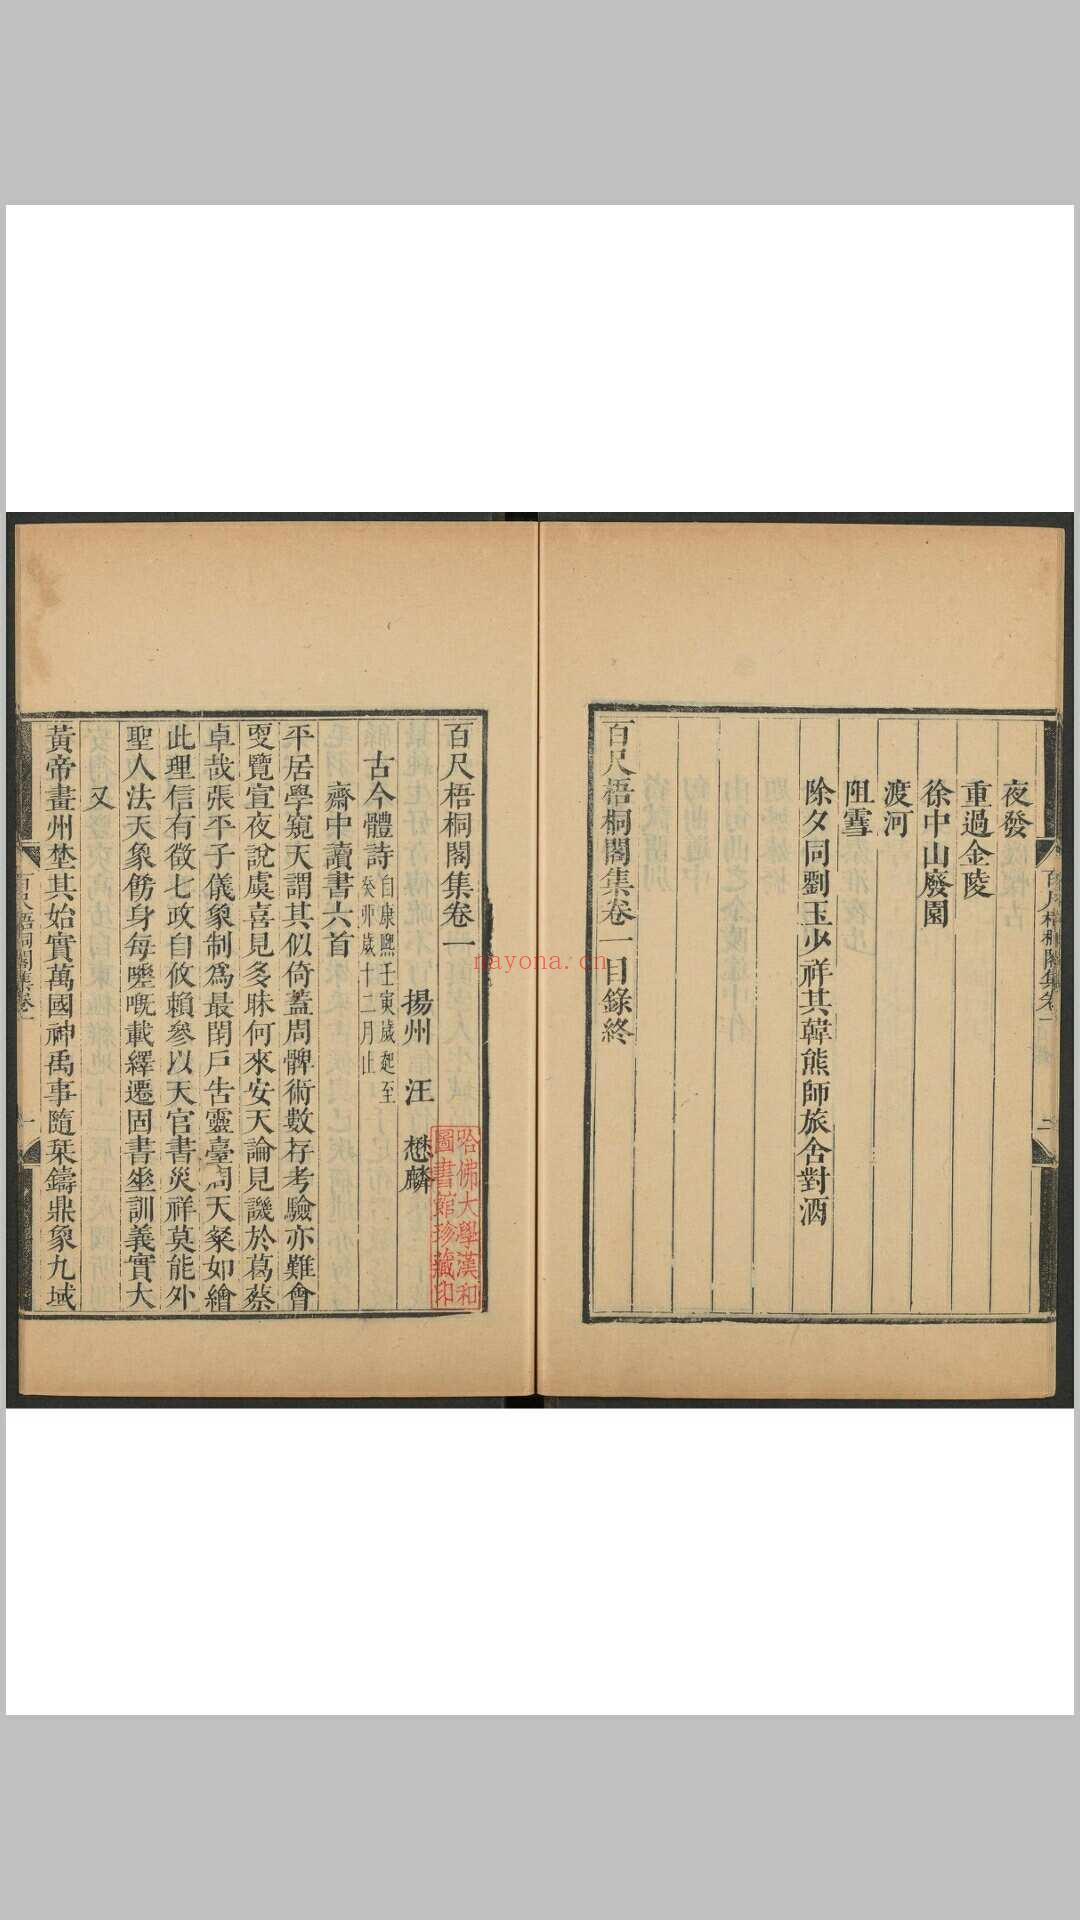 夜發
重過金陵
徐中山廢園
渡河
阻雪
除夕同劉玉少祥其韓熊師旅舍對酒
百尺梧桐閣集卷一目錄終
百尺梧桐閣集卷一
二
百尺梧桐閣集卷一
揚州 汪 懋麟
古今體詩自康熙壬寅歲起至癸卯歲十二月止
齋中讀書六首
平居學窺天謂其似倚蓋周髀術數存考驗亦難會
更覽宣夜說虞喜見多昧何來安天論見譏於葛蔡
卓哉張平子儀象制爲最閉戶告靈臺周天粲如繪
此理信有徵七政自攸賴參以天官書災祥莫能外
聖人法天象脩身每嘅載繹遷固書垂訓義實大
又
黃帝畫州埜其始實萬國神禹事隨栞鑄鼎象九域
百尺梧桐閣集卷一
一
哈佛大學漢和圖書館珍藏印
nayona.cn